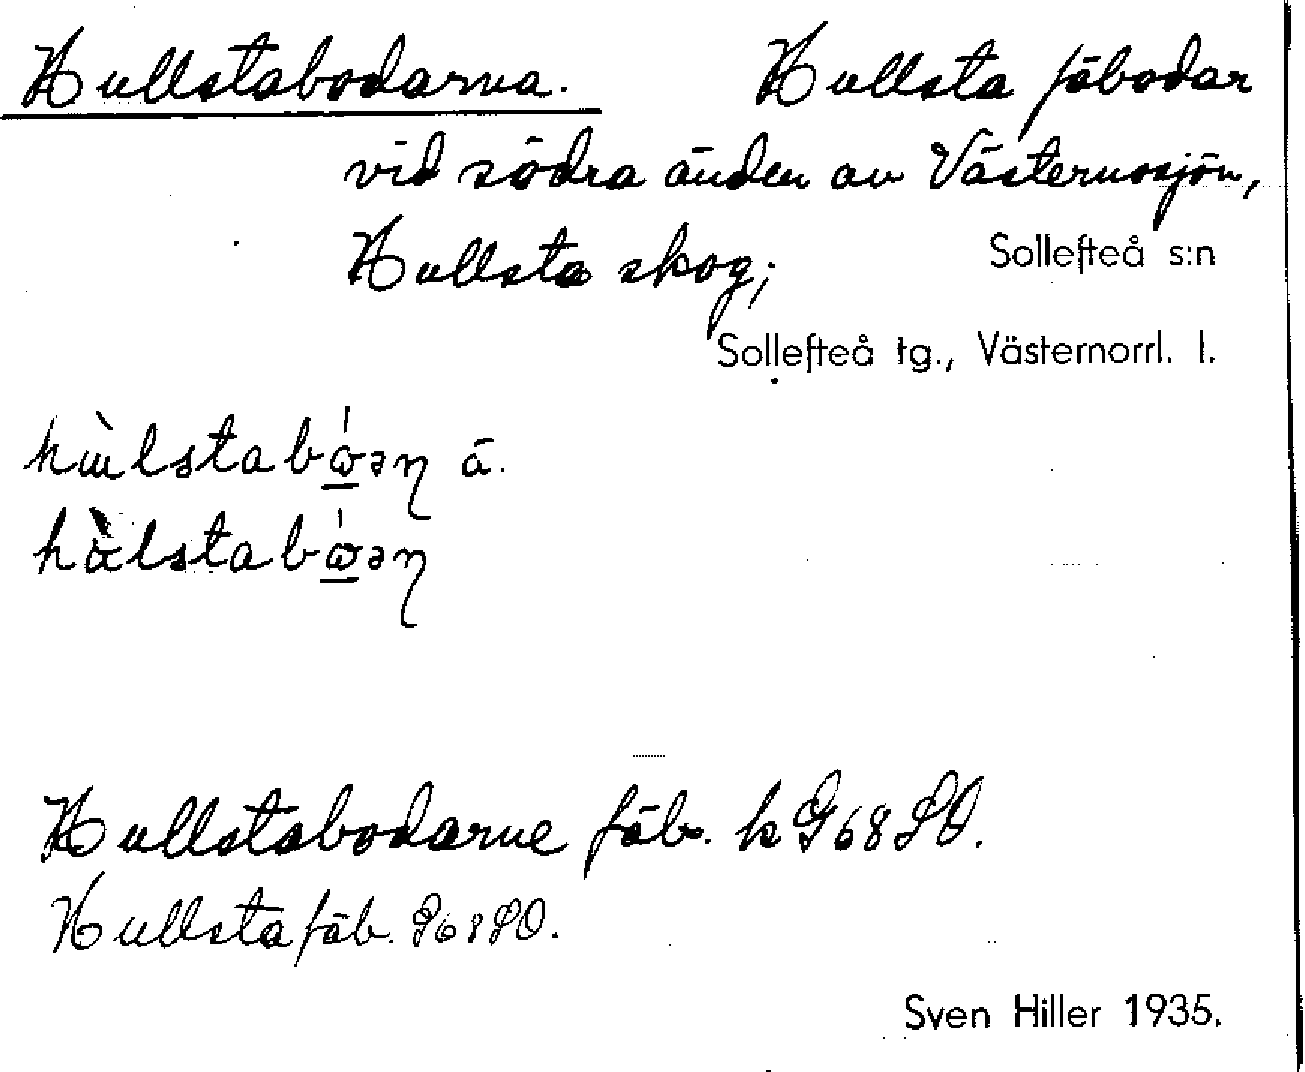 Hullstabodarna. Hullsta fäbodar
vid södra änden av Västernosjön,
Hullsta skog; Sollefteå s:n
Sollefteå tg., Västernorrl. l.
ä.
Hullstabodarne fäb. k G68SO.
Hullsta fäb. G68SO.
Sven Hiller 1935.